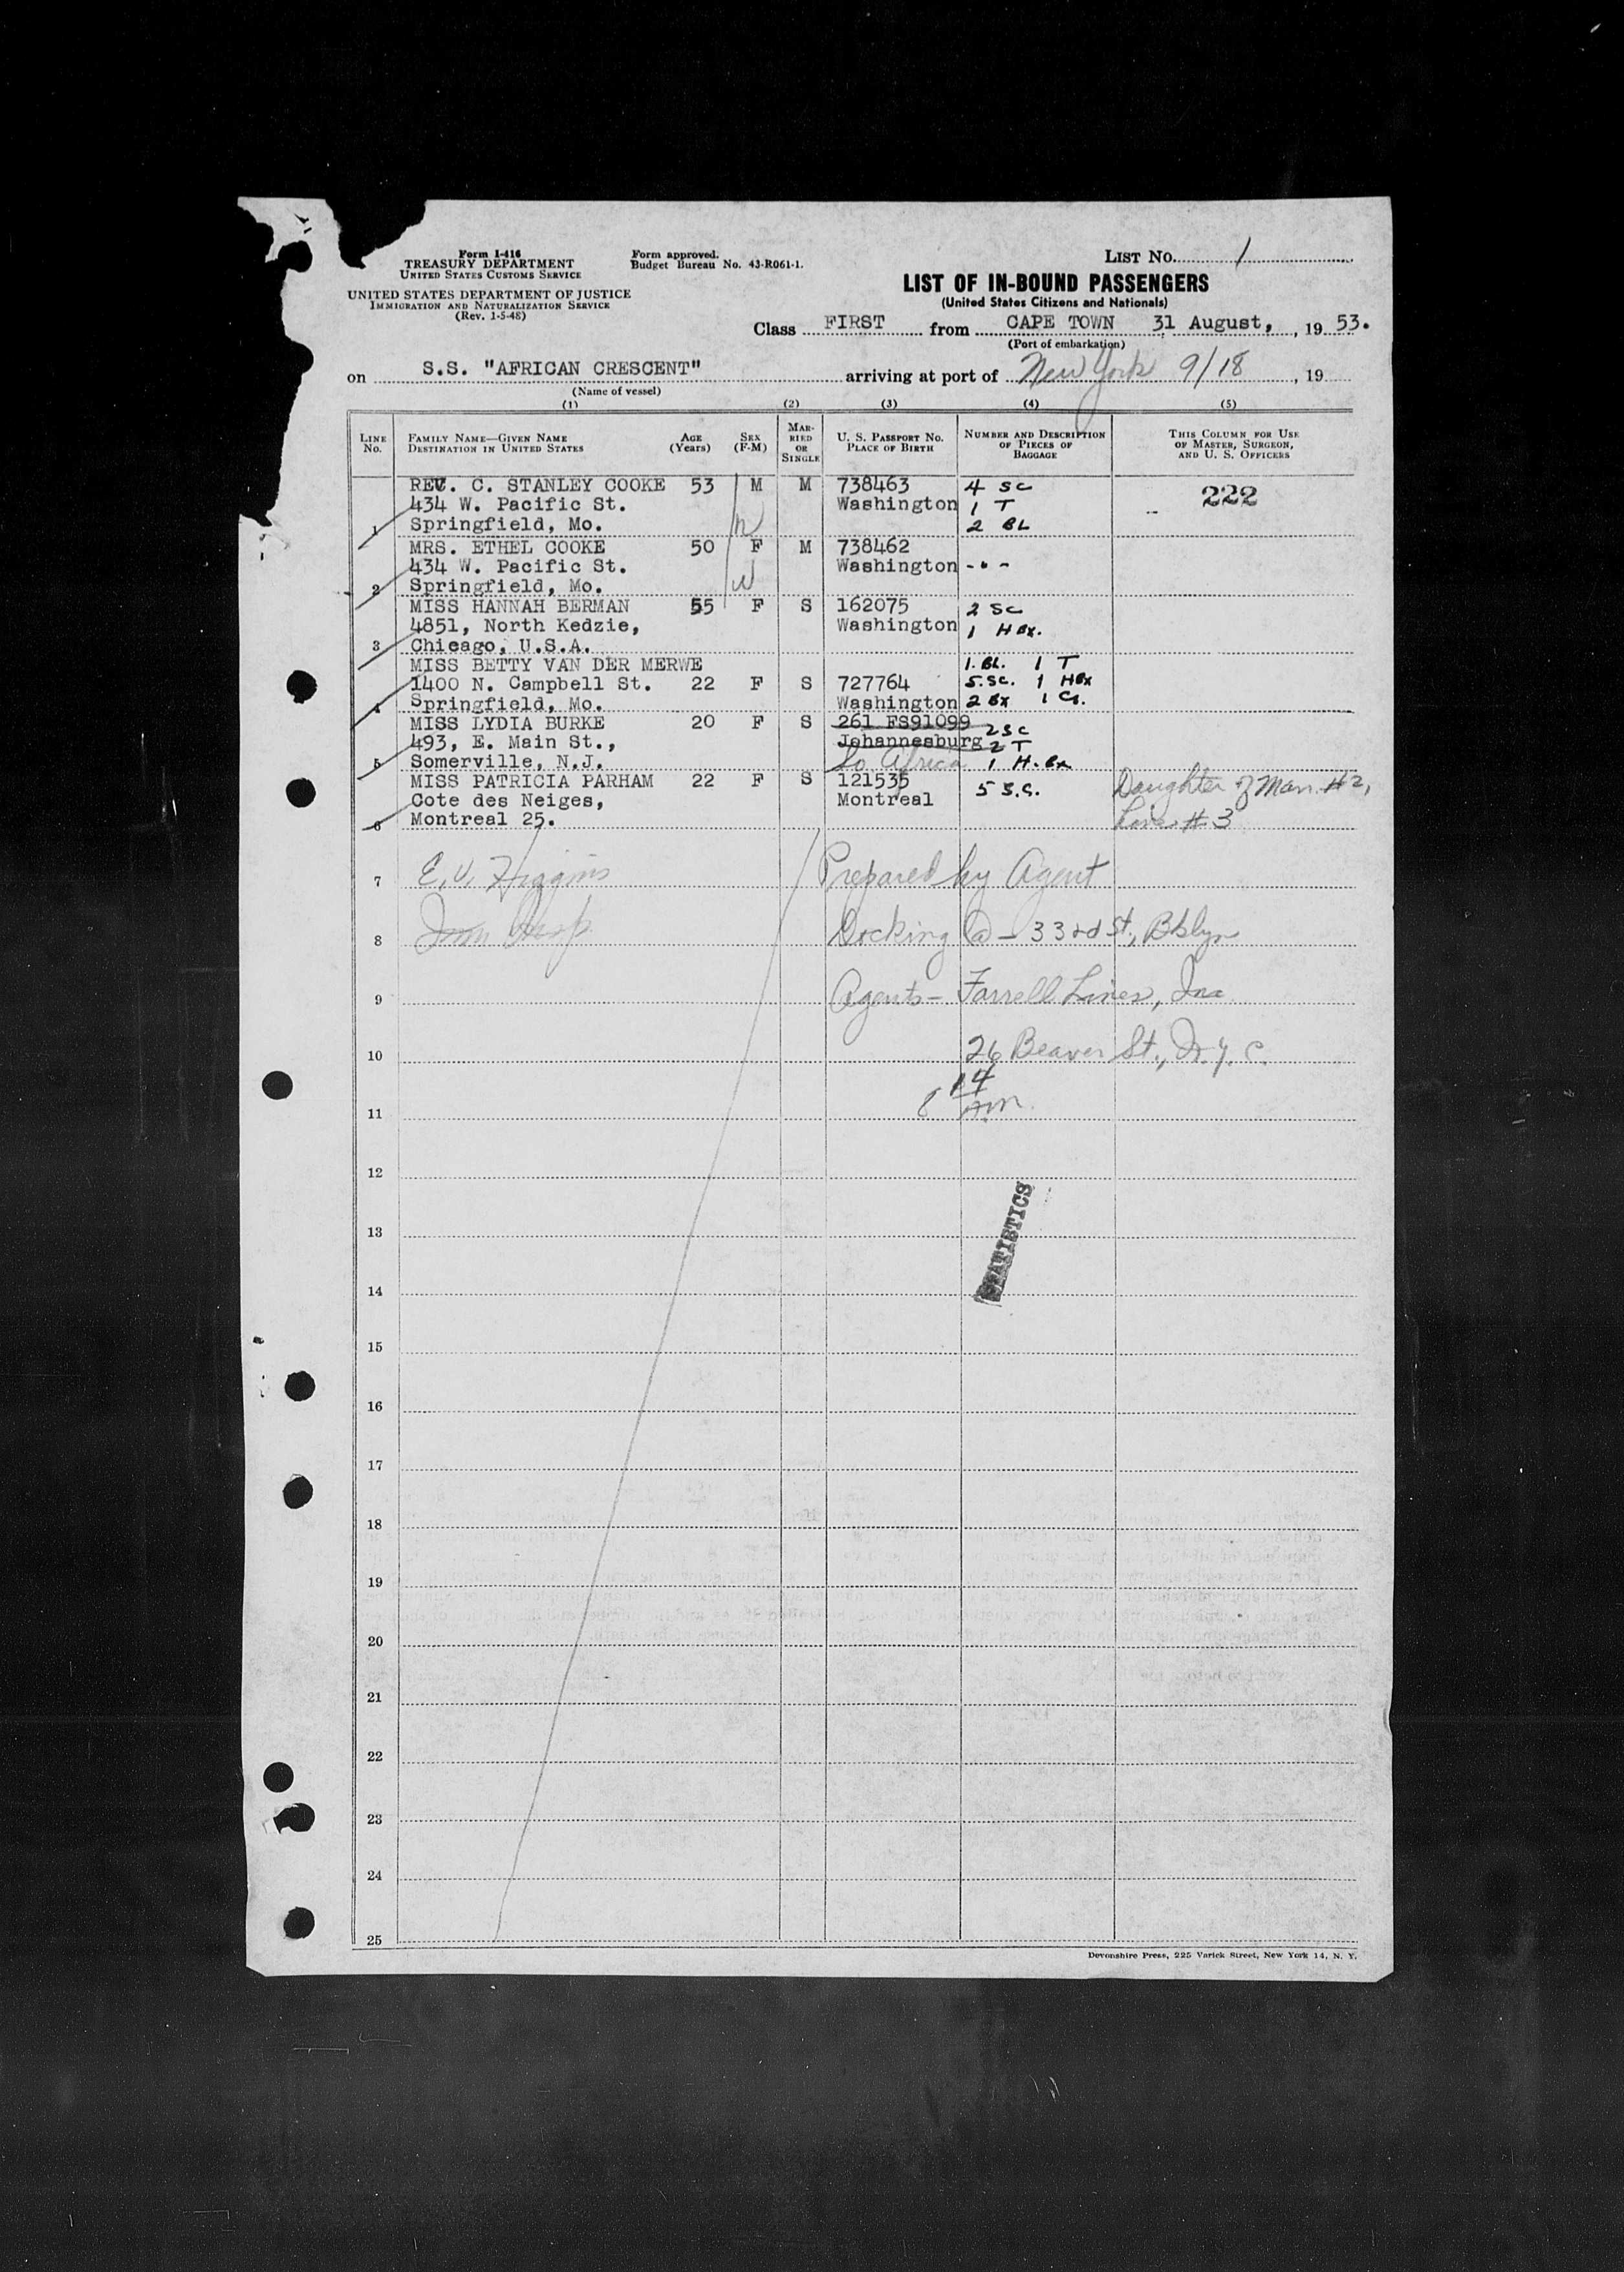 Form I-416
TREASURY DEPARTMENT
UNITED STATES CUSTOMS SERVICE
UNITED STATES DEPARTMENT OF JUSTICE
IMMIGRATION AND NATURALIZATION SERVICE
(Rev. 1-5-48)
Form approved.
Budget Bureau No. 43-R061-1.
LIST NO. 1
LIST OF IN-BOUND PASSENGERS
(United States Citizens and Nationals)
Class FIRST from CAPE TOWN 31 August, , 19 53.
(Port of embarkation)
on S.S. "AFRICAN CRESCENT" arriving at port of New York 9/18 , 19
(Name of vessel)
(1) (2) (3) (4) (5)
LINE NO. FAMILY NAME—GIVEN NAME DESTINATION IN UNITED STATES AGE (Years) SEX (F-M) MARRIED OR SINGLE U. S. PASSPORT NO. PLACE OF BIRTH NUMBER AND DESCRIPTION OF PIECES OF BAGGAGE THIS COLUMN FOR USE OF MASTER, SURGEON, AND U. S. OFFICERS
REV. C. STANLEY COOKE 53 M M 738463 4 SC 222
434 W. Pacific St. Washington 1 T
1 Springfield, Mo. 2 BL
MRS. ETHEL COOKE 50 F M 738462
434 W. Pacific St. Washington - " -
2 Springfield, Mo. W
MISS HANNAH BERMAN 55 F S 162075 2 SC
4851, North Kedzie, Washington 1 H Bx.
3 Chicago, U.S.A.
MISS BETTY VAN DER MERWE 1. BL. 1 T
1400 N. Campbell St. 22 F S 727764 5. SC. 1 HBx
4 Springfield, Mo. Washington 2 Bx 1 Cs.
MISS LYDIA BURKE 20 F S 261 FS91099 2 SC
493, E. Main St., Johannesburg 2 T
5 Somerville, N.J. So Africa 1 H. Bx
MISS PATRICIA PARHAM 22 F S 121535 5 S.C. Daughter of Man. #2,
Cote des Neiges, Montreal
6 Montreal 25. Line #3
7 E. V. Higgins Prepared by Agent
8 Docking @ - 33rd St, Bklyn
9 Agents - Farrell Lines, Inc
10 26 Beaver St., N.Y.C.
11 8 14 AM
12
STATISTICS
13
14
15
16
17
18
19
20
21
22
23
24
25
Devonshire Press, 225 Varick Street, New York 14, N. Y.